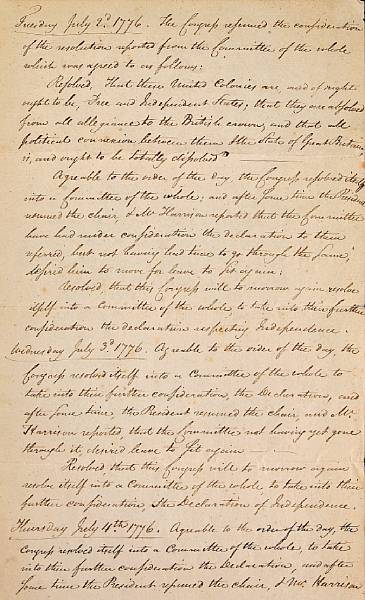 Tuesday July 2d. 1776. The Congress resumed the consideration
of the resolution reported from the Committee of the whole
which was agreed to as follows:
Resolved, That these United Colonies are, and of right
ought to be, Free and Independent States; that they are absolved
from all allegiance to the British crown, and that all
political connexion between them & the State of Great Britain
is, and ought to be totally dissolved"
Agreeable to the order of the day, the Congress resolved itself
into a Committee of the whole; and after some time the President
resumed the chair, & Mr Harrison reported that the Committee
have had under consideration the declaration to them
referred, but not having had time to go through the same,
desired him to move for leave to sit again;
Resolved, that this Congress will to morrow again resolve
itself into a Committee of the whole, to take into their further
consideration the declaration respecting Independence.
Wednesday July 3d. 1776. Agreable to the order of the day, the
Congress resolved itself into a Committee of the whole to
take into their further consideration, the Declaration, and
after some time the President resumed the chair and Mr
Harrison reported that the Committee not having yet gone
through it, desired leave to sit again —
Resolved that this Congress will to morrow again
resolve itself into a Committee of the whole, to take into their
further consideration, the Declaration of Independence.
Thursday July 4th 1776. Agreable to the order of the day, the
Congress resolved itself into a Committee of the whole, to take
into their further consideration the Declaration, and after
some time the President resumed the chair, & Mr. Harrison